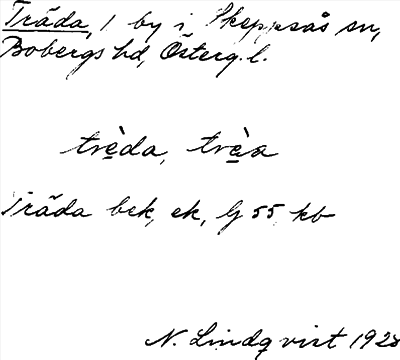 Träda, 1 by i Skeppsås sn,
Bobergs hd, Österg. l.
trèda, trèa
Träda bek, ek, G 55, kb
N. Lindqvist 1928